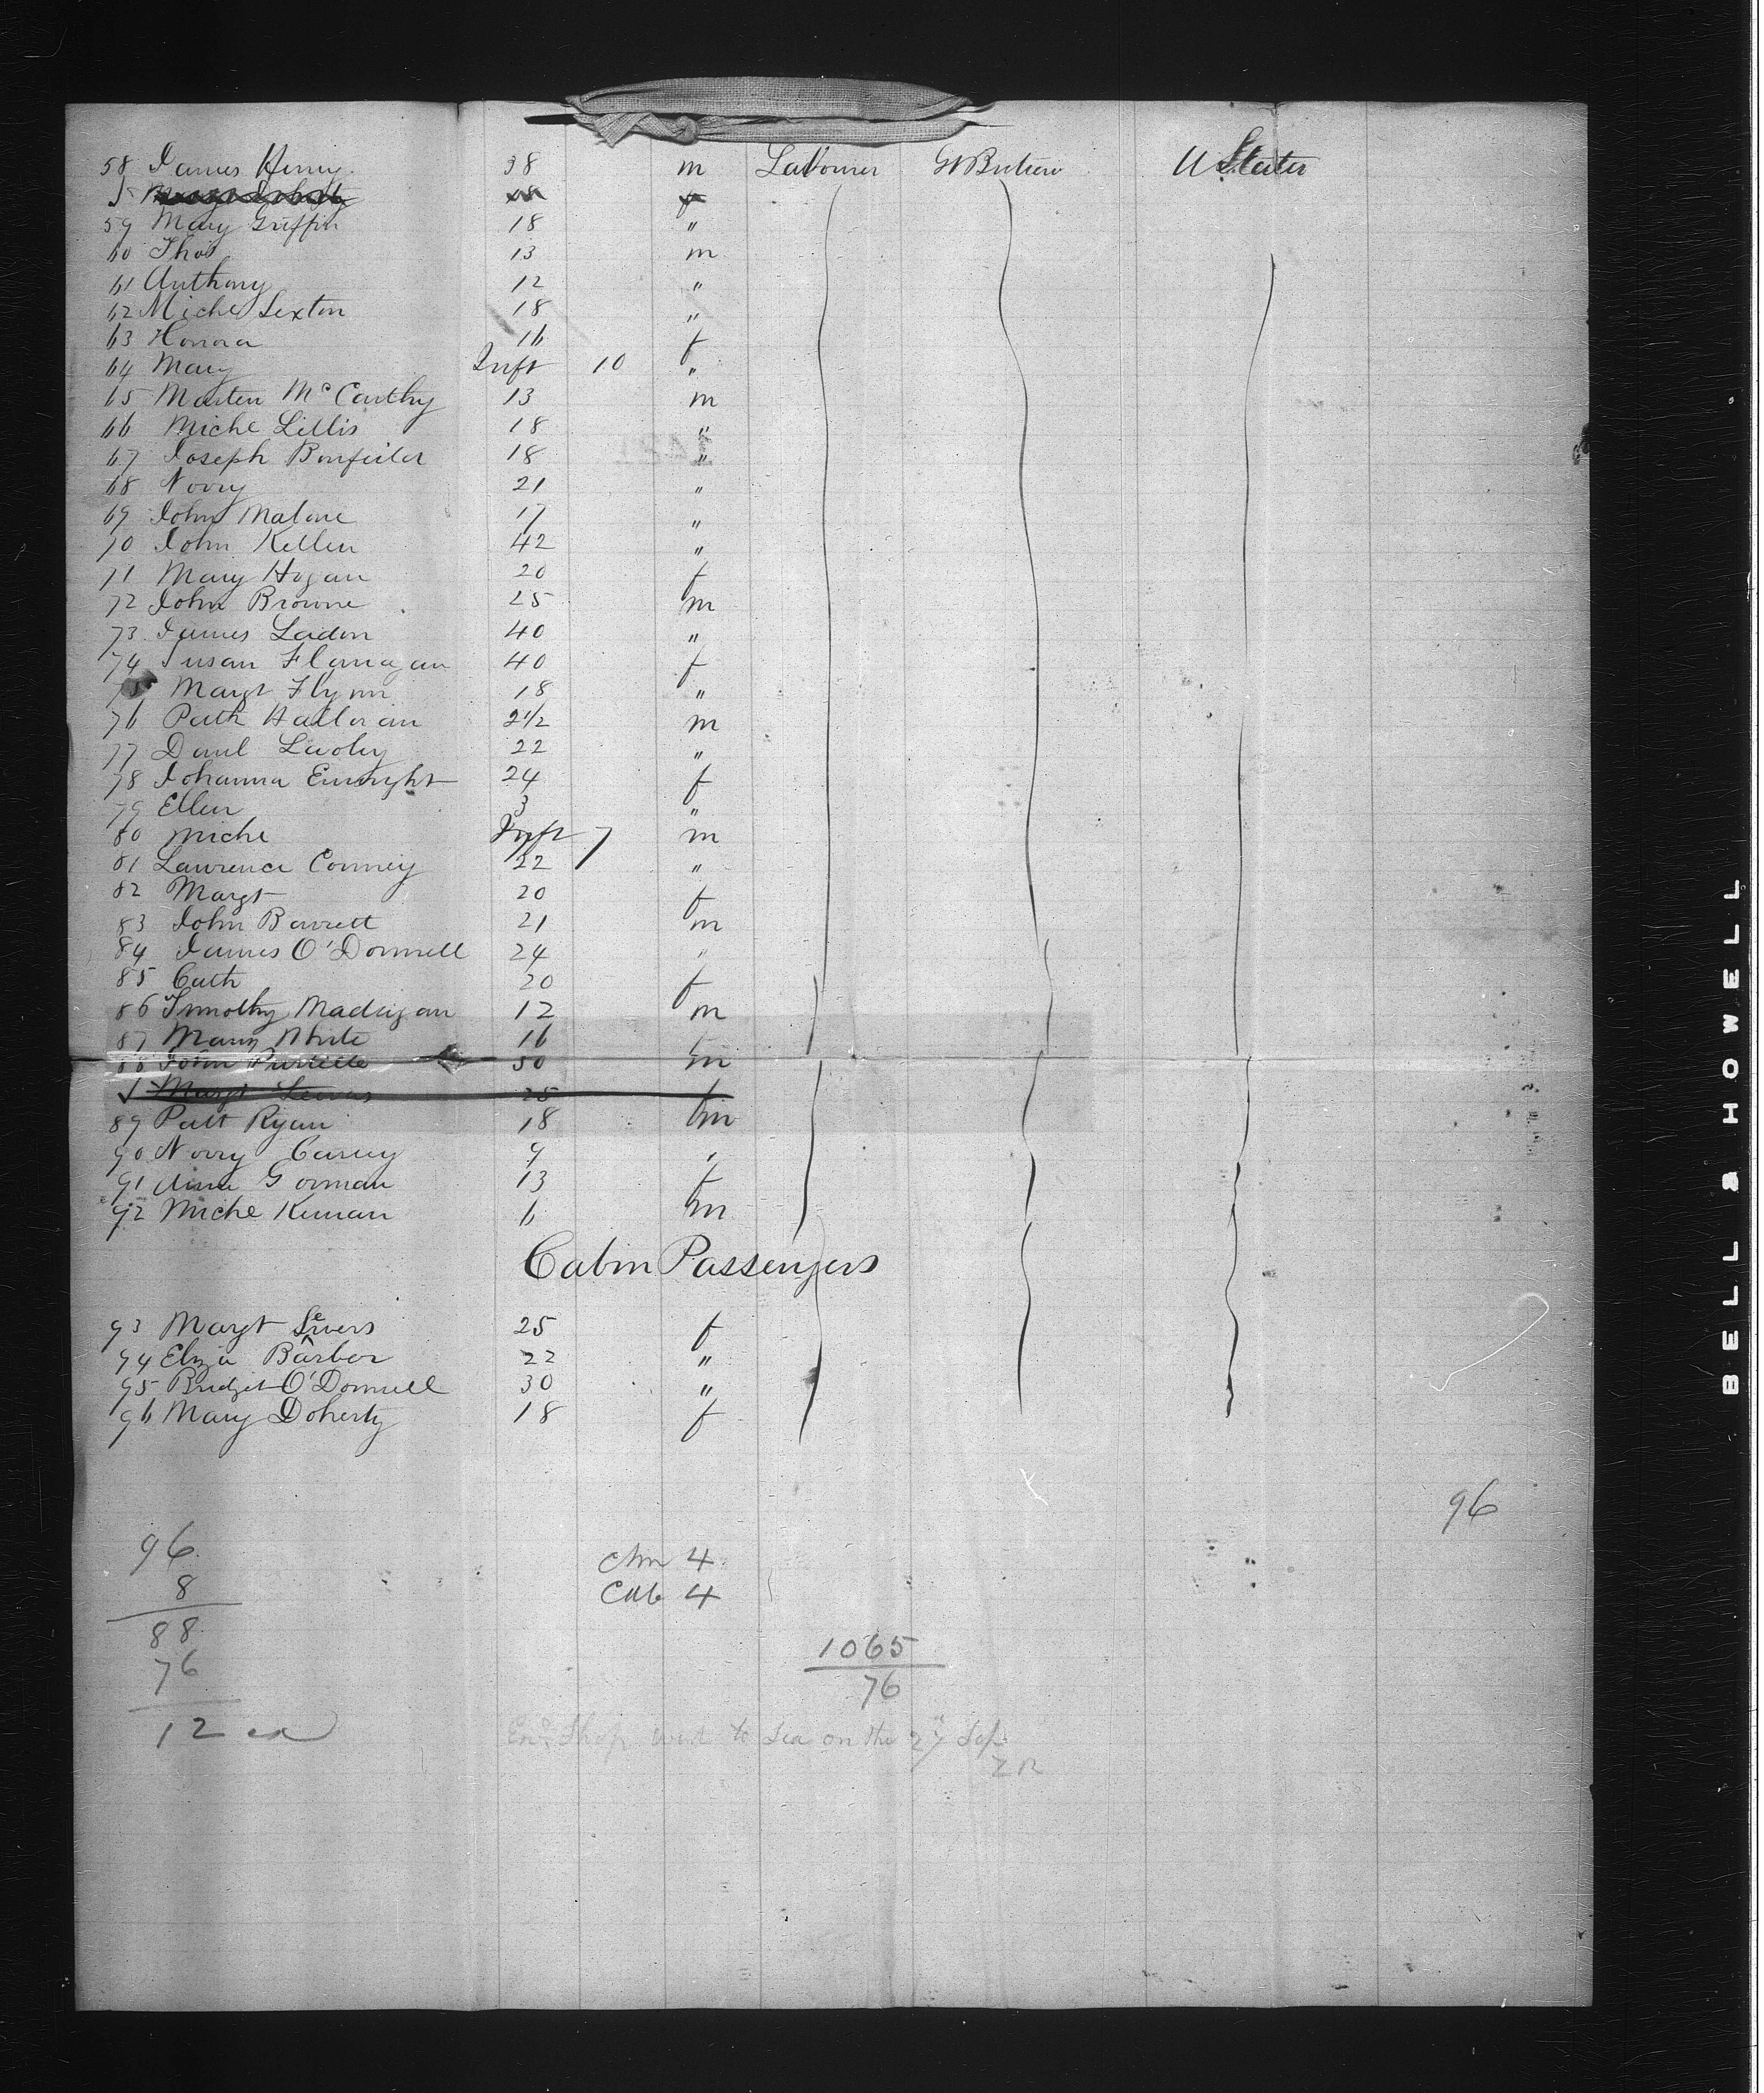 58 James Henry 38 m Labourer Gt Britain U States
59 Mary Griffin 18 "
60 Thos 13 m
61 Anthony 12 "
62 Michl Sexton 18 "
63 Honora 16 f
64 Mary Inft 10 "
65 Marten McCarthy 13 m
66 Michl Lillis 18 "
67 Joseph 18 "
68 Norry 21 "
69 John Malone 17 "
70 John Kellen 42 "
71 Mary Hogan 20 f
72 John Browne 25 m
73 James 40 "
74 Susan Flanagan 40 f
75 Margt Flynn 18 "
76 Patk Halloran 2 1/2 m
77 Danl 22 "
78 Johanna Enwright 24 f
79 Ellen 3 "
80 Michl Inft 7 m
81 Lawrence Conney 22 "
82 Margt 20 f
83 John Barrett 21 m
84 James O'Donnell 24 "
85 Cath 20 f
86 Timothy Madigan 12 m
87 Mary White 16 f
88 John 50 m
Margt 25 f
89 Patt Ryan 18 m
90 Norry Carey 9 "
91 Anne Gorman 13 f
92 Michl Kernan 6 m
Cabin Passengers
93 Margt 25 f
94 Eliza Barber 22 "
95 Bridget O'Donnell 30 "
96 Mary Doherty 18 f
96
96
8
88
76
12
4
Cab 4
1065
76
to Sea on the 27 Sep
BELL & HOWELL